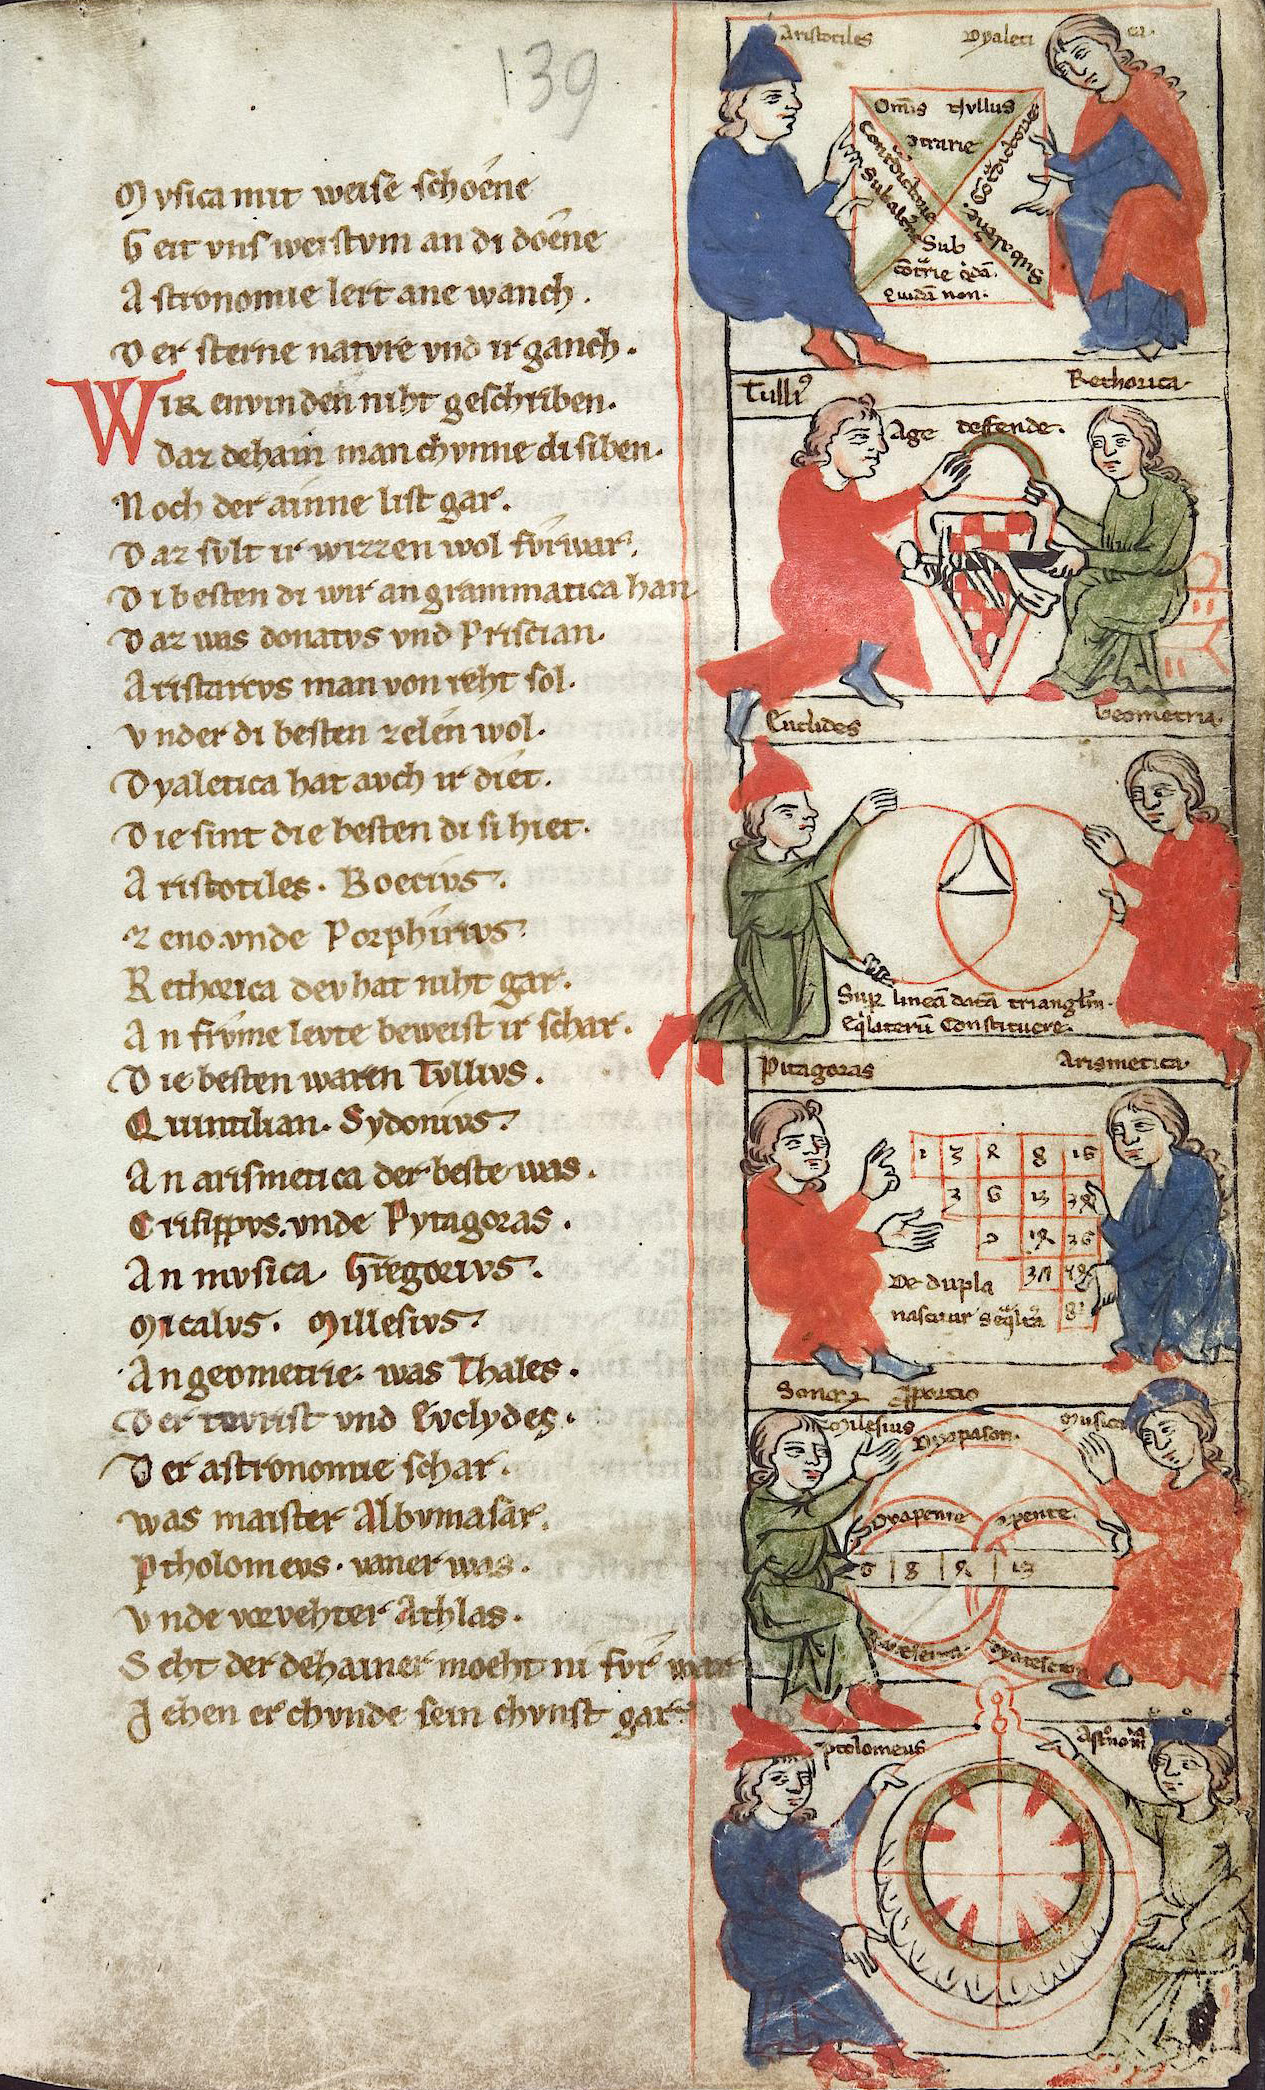 139
Mvsica mit weise schoene
Geit vns weistvm an di doene
Astronomie lert ane wanch.
Der sterne natvre vnd ir ganch.
Wir envinden niht geschriben.
daz dehain man chvnne di siben.
Noch der ainne list gar.
Daz svlt ir wizzen wol fvrwar.
Di besten di wir an grammatica han
Daz was donatvs vnd Priscian.
Aristarcvs man von reht sol.
vnder di besten zelen wol.
Dyaletica hat avch ir diet.
Die sint die besten di si hiet.
Aristotiles. Boecivs.
zeno. vnde Porphirivs
Rethorica dev hat niht gar.
An frvme levte beweist ir schar.
Die besten waren Tvllivs.
Quintilian. Sydonivs.
An arismetica der beste was.
Crisippvs. vnde Pytagoras.
An mvsica Gregorivs.
Micalvs. Millesivs.
An geometrie. was Thales.
Der vnd Evclydes.
Der astronomie schar.
was maister Albvmasar.
Ptholomevs. vaner was.
vnde vorvehter Athlas.
Seht der dehainer moeht ni fvr war
Jehen er chvnde sein chvnst gar
Aristotiles Dyaleti ca.
Omis nvllus
9trarie
Sub
qdā.
Quidā non.
Tulli9 Rethorica.
Age deffende.
Euclides Geometria.
Sup lineā datā trianglm.
eqilaterū Constituere.
Pitagoras Arismetica.
1 8 16
6
De dupla
nascitur
Milesius Musica
Dyapason.
Dyapente 9pente.
6 8 9 12
Ptolomeus